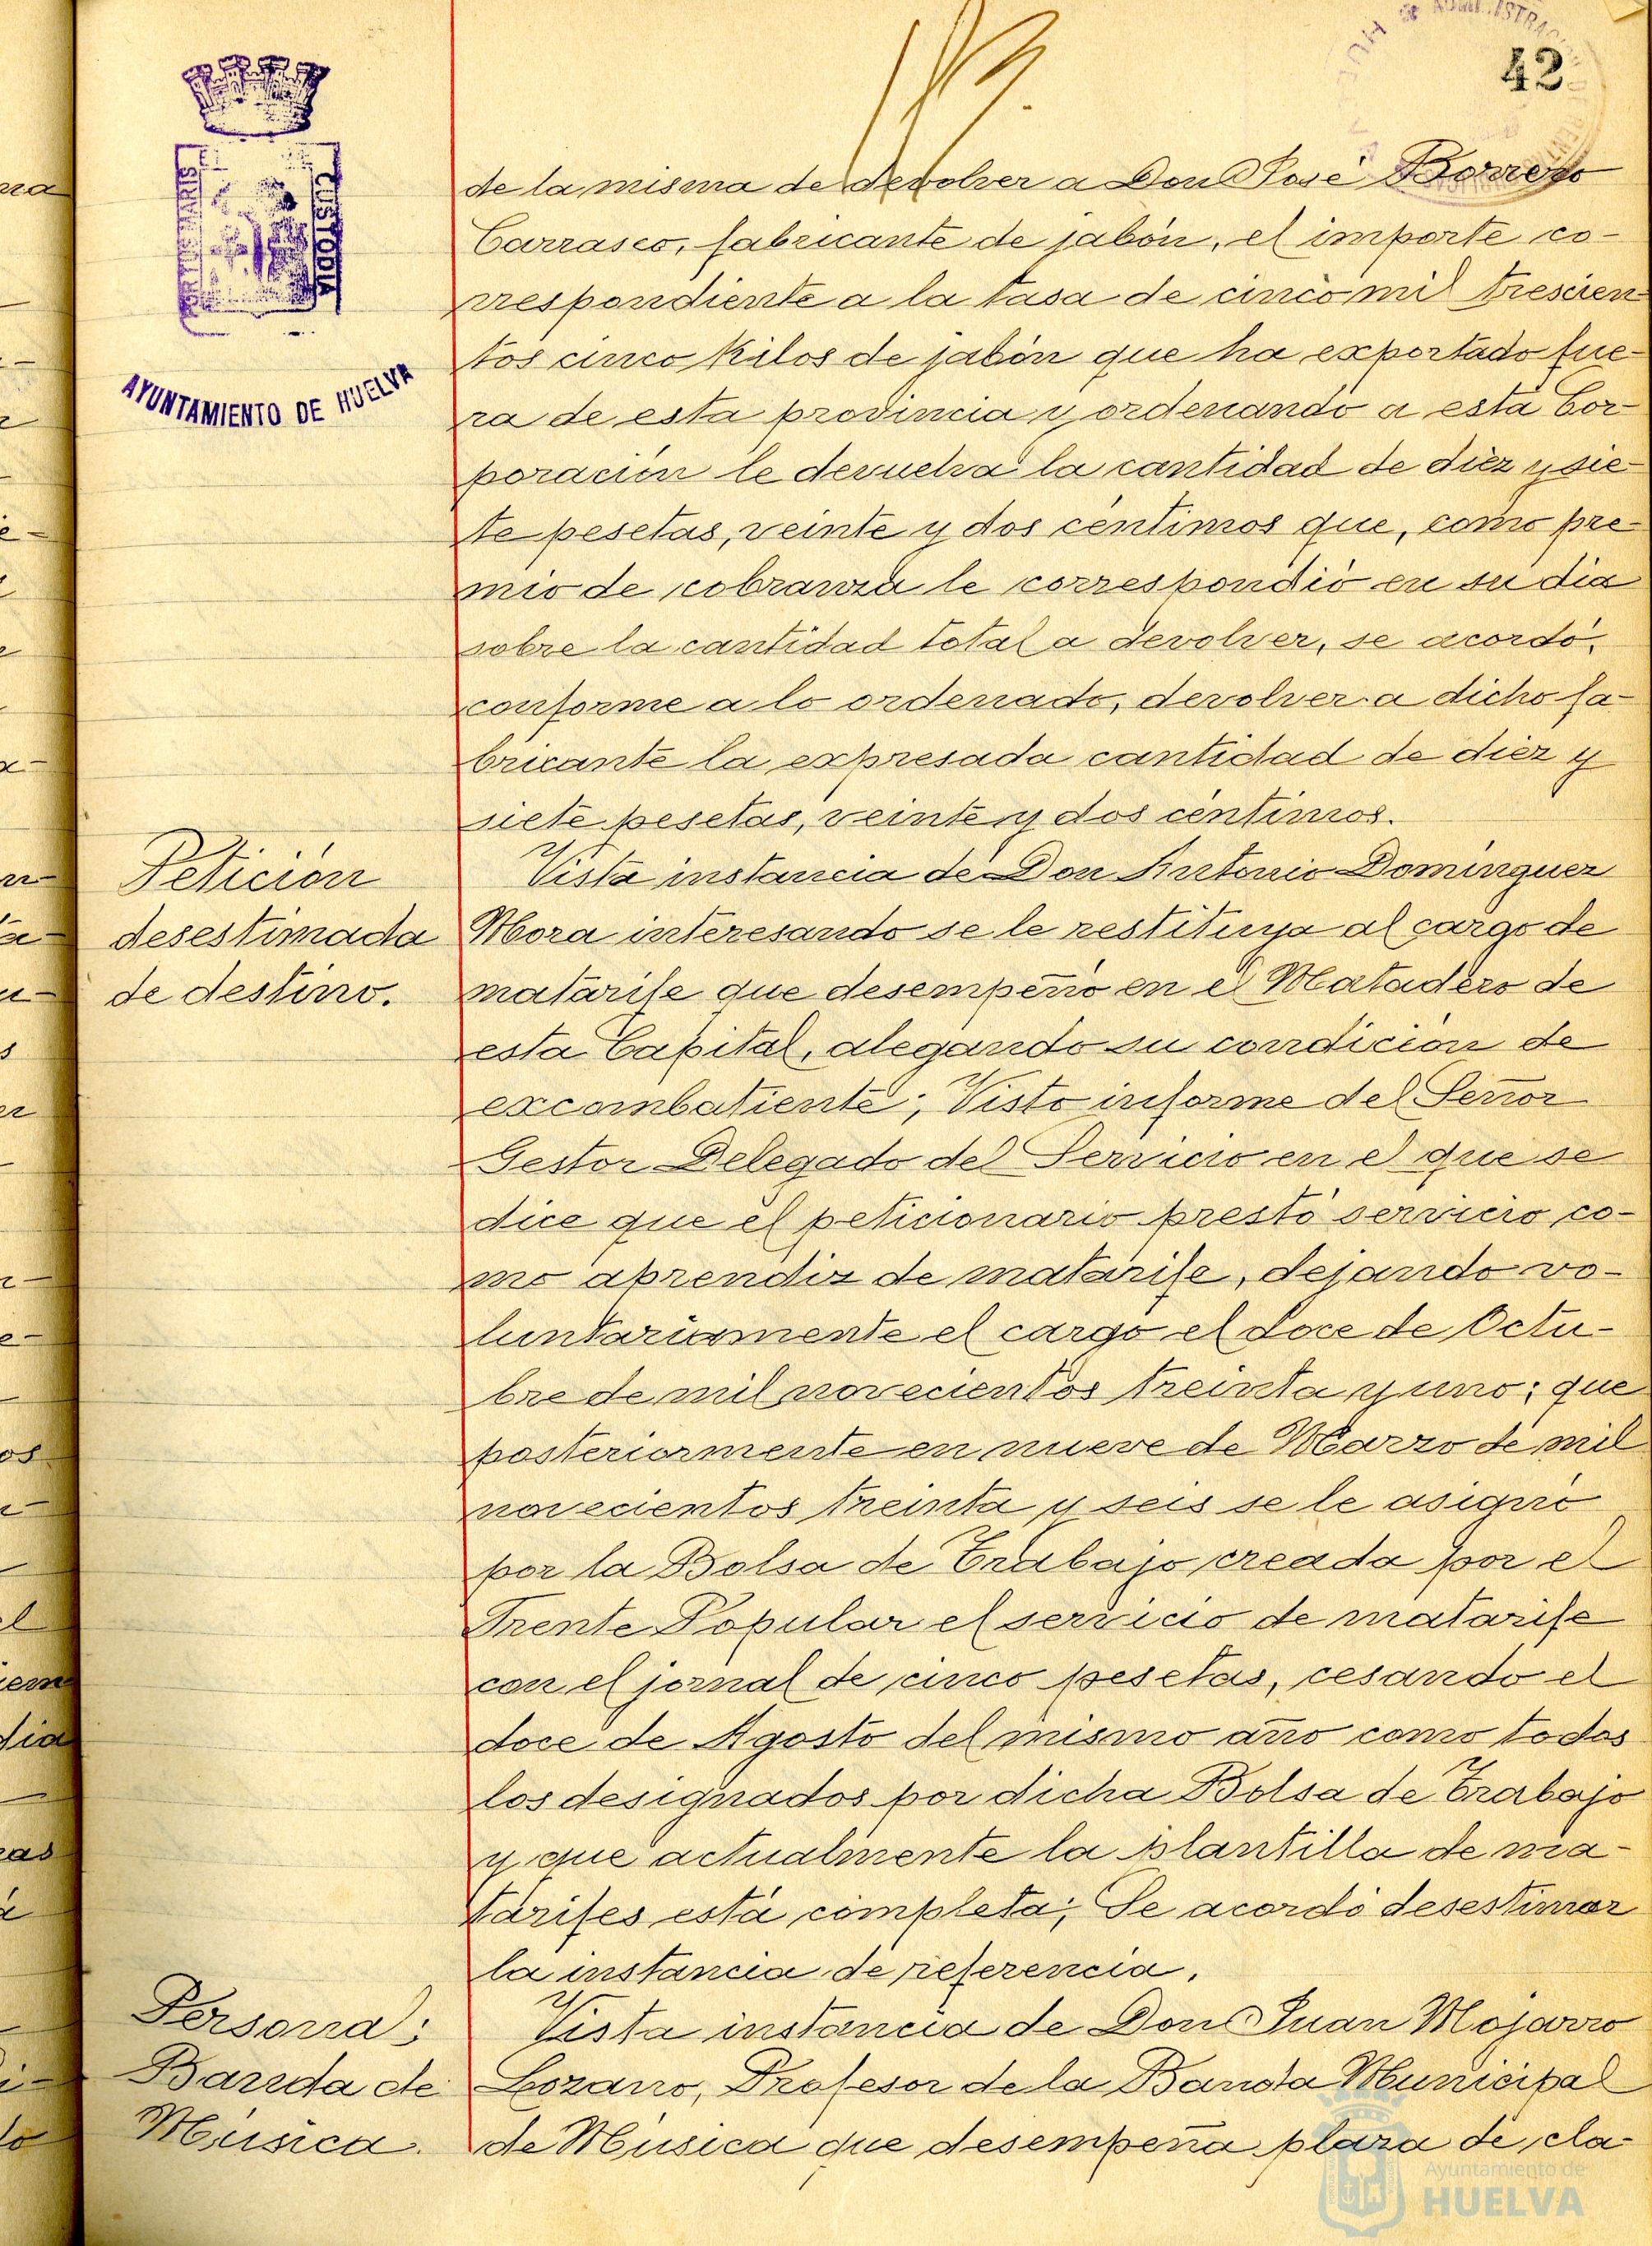 42
PORTUS MARIS
CUSTODIA
AYUNTAMIENTO DE HUELVA
de la misma de devolver a Don José Borrero
Carrasco, fabricante de jabón, el importe co-
rrespondiente a la tasa de cinco mil trescien-
tos cinco kilos de jabón que ha exportado fue-
ra de esta provincia y ordenando a esta Cor-
poración le devuelva la cantidad de diez y sie-
te pesetas, veinte y dos céntimos que, como pre-
mio de cobranza le correspondió en su dia
sobre la cantidad total a devolver, se acordó,
conforme a lo ordenado, devolver a dicho fa-
bricante la expresada cantidad de diez y
siete pesetas, veinte y dos céntimos.
Petición
desestimada
de destino.
Vista instancia de Don Antonio Domínguez
Mora interesando se le restituya al cargo de
matarife que desempeñó en el Matadero de
esta Capital, alegando su condición de
excombatiente; Visto informe del Señor
Gestor Delegado del Servicio en el que se
dice que el peticionario prestó servicio co-
mo aprendiz de matarife, dejando vo-
luntariamente el cargo el doce de Octu-
bre de mil novecientos treinta y uno; que
posteriormente en nueve de Marzo de mil
novecientos treinta y seis se le asignó
por la Bolsa de Trabajo creada por el
Frente Popular el servicio de matarife
con el jornal de cinco pesetas, cesando el
doce de Agosto del mismo año como todos
los designados por dicha Bolsa de Trabajo
y que actualmente la plantilla de ma-
tarifes está completa; Se acordó desestimar
la instancia de referencia.
Personal;
Banda de
Música.
Vista instancia de Don Juan Mojarro
Lozano, Profesor de la Banda Municipal
de Música que desempeña plaza de cla-
Ayuntamiento de
HUELVA